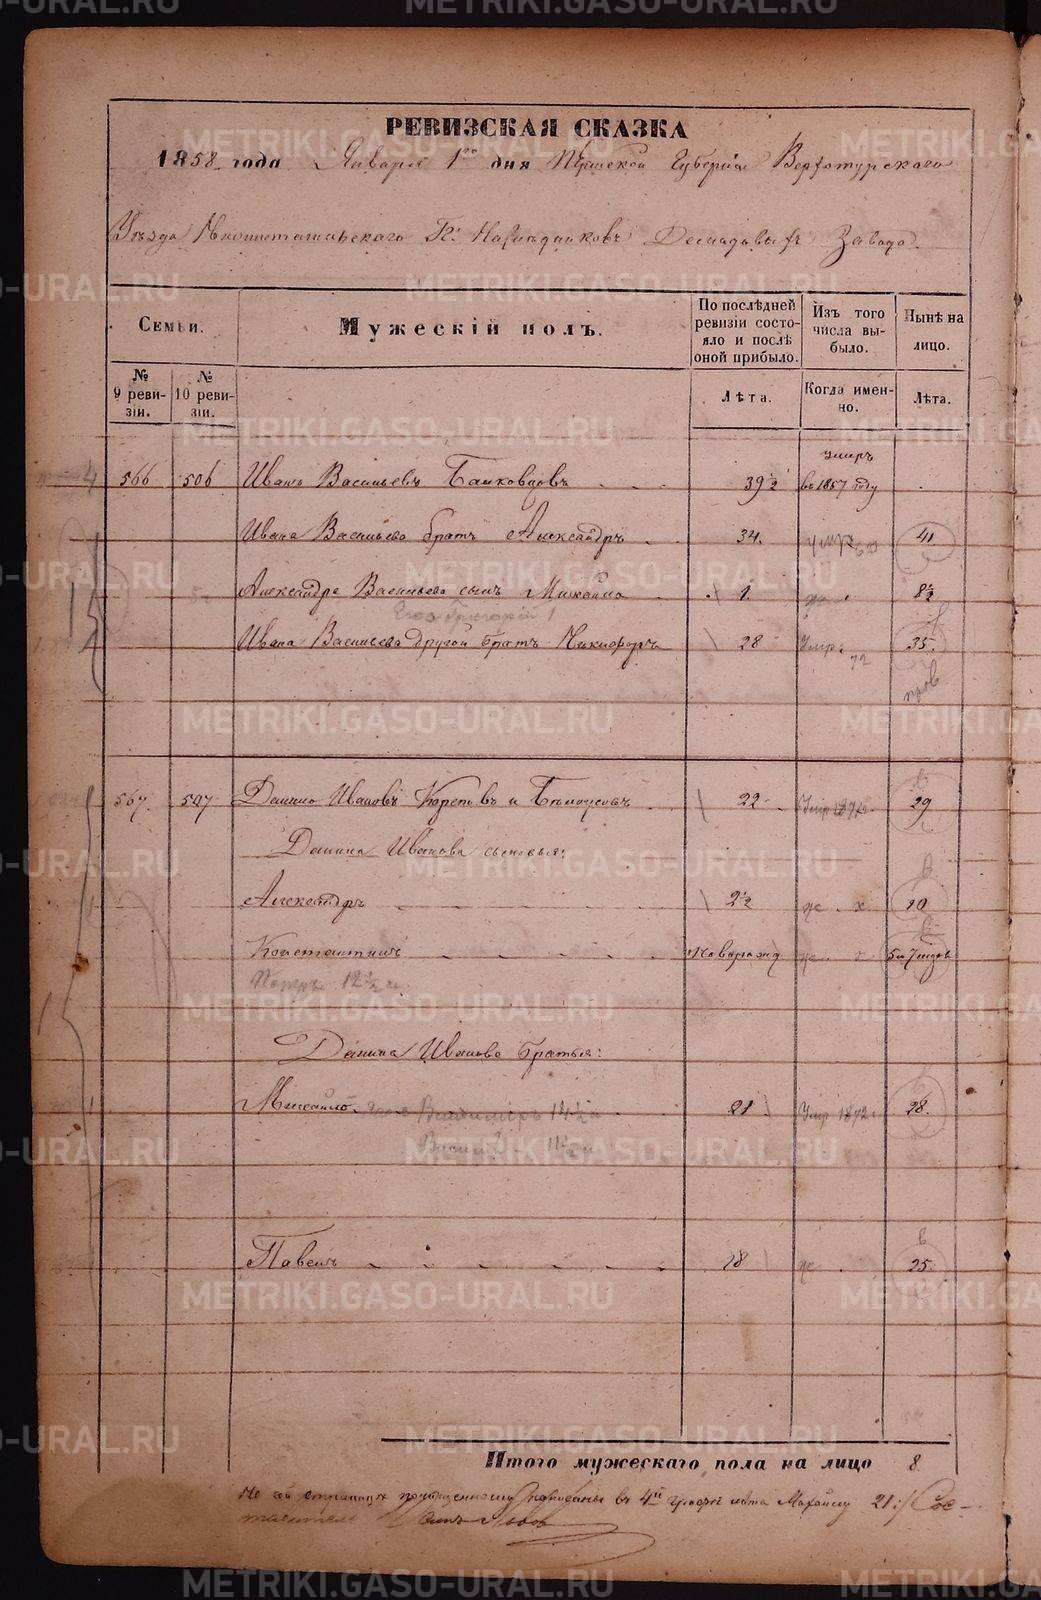 РЕВИЗСКАЯ СКАЗКА
1858 года Января 1го дня Пермской Губернии Верхотурскаго
Уѣзда Нижнетагильскаго Гг. Наслѣдниковъ Демидовыхъ Завода.
Семьи.
Мужескій полъ.
По послѣдней ревизіи состояло и послѣ оной прибыло.
Изъ того числа выбыло.
Нынѣ на лицо.
№ 9 ревизіи.
№ 10 ревизіи.
Лѣта.
Когда именно.
Лѣта.
566 506 Иванъ Васильевъ 39½ умеръ въ 1857 году
Ивана Васильева братъ Александръ 34. 41.
Александра Васильева сынъ Михайло 1. 8½
Его Григорій 1
Ивана Васильева другой братъ Никифоръ 28 Умръ 72 35.
567. 507 Данило Ивановъ и Бѣлоусовъ 22 Умр 29
Данила Иванова сыновья:
Александръ 2½ 10
Константинъ Новорожд. 5 и 7 мцовъ
Петръ 12½
Данила Иванова братья:
Михайло Владиміръ 14½ 21 Умр 1872 28.
Василій 11½
Павелъ 18 25.
Итого мужескаго пола на лицо 8.
На сей страницѣ по въ 4й графѣ лѣта Михайлу 21:
METRIKI.GASO-URAL.RU